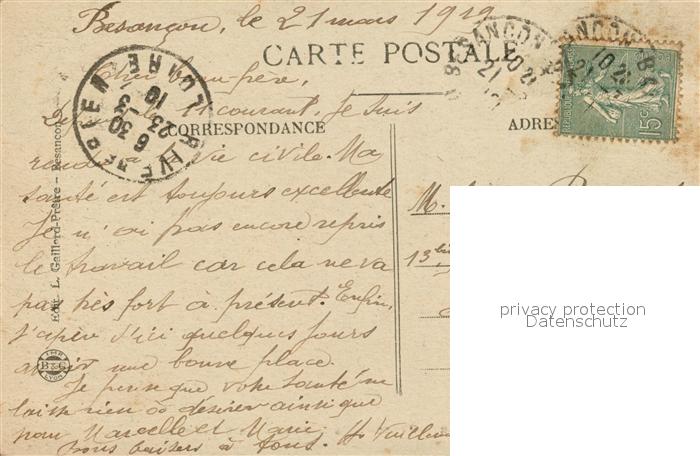 Besançon, le 21 mars 1919
CARTE POSTALE
Cher beau-frère,
Depuis le 11 courant, je suis
CORRESPONDANCE
ADRES
rendu à la vie civile. Ma
santé est toujours excellente
Je n'ai pas encore repris
le travail car cela ne va
pas très fort à présent. Enfin,
j'espère d'ici quelques jours
avoir une bonne place.
Je pense que votre santé ne
laisse rien à désirer ainsi que
pour Marcelle et Marie.
Bons baisers à tous. H Vuillem
M.
13 bis
Edit. L. Gaillard-Prêtre - Besançon
IMP.
B & G
LYON
RIVE DE GIER
LOIRE
6 30
23 -3
19
BESANÇON
21
REPUBLIQUE
15c
privacy protection
Datenschutz